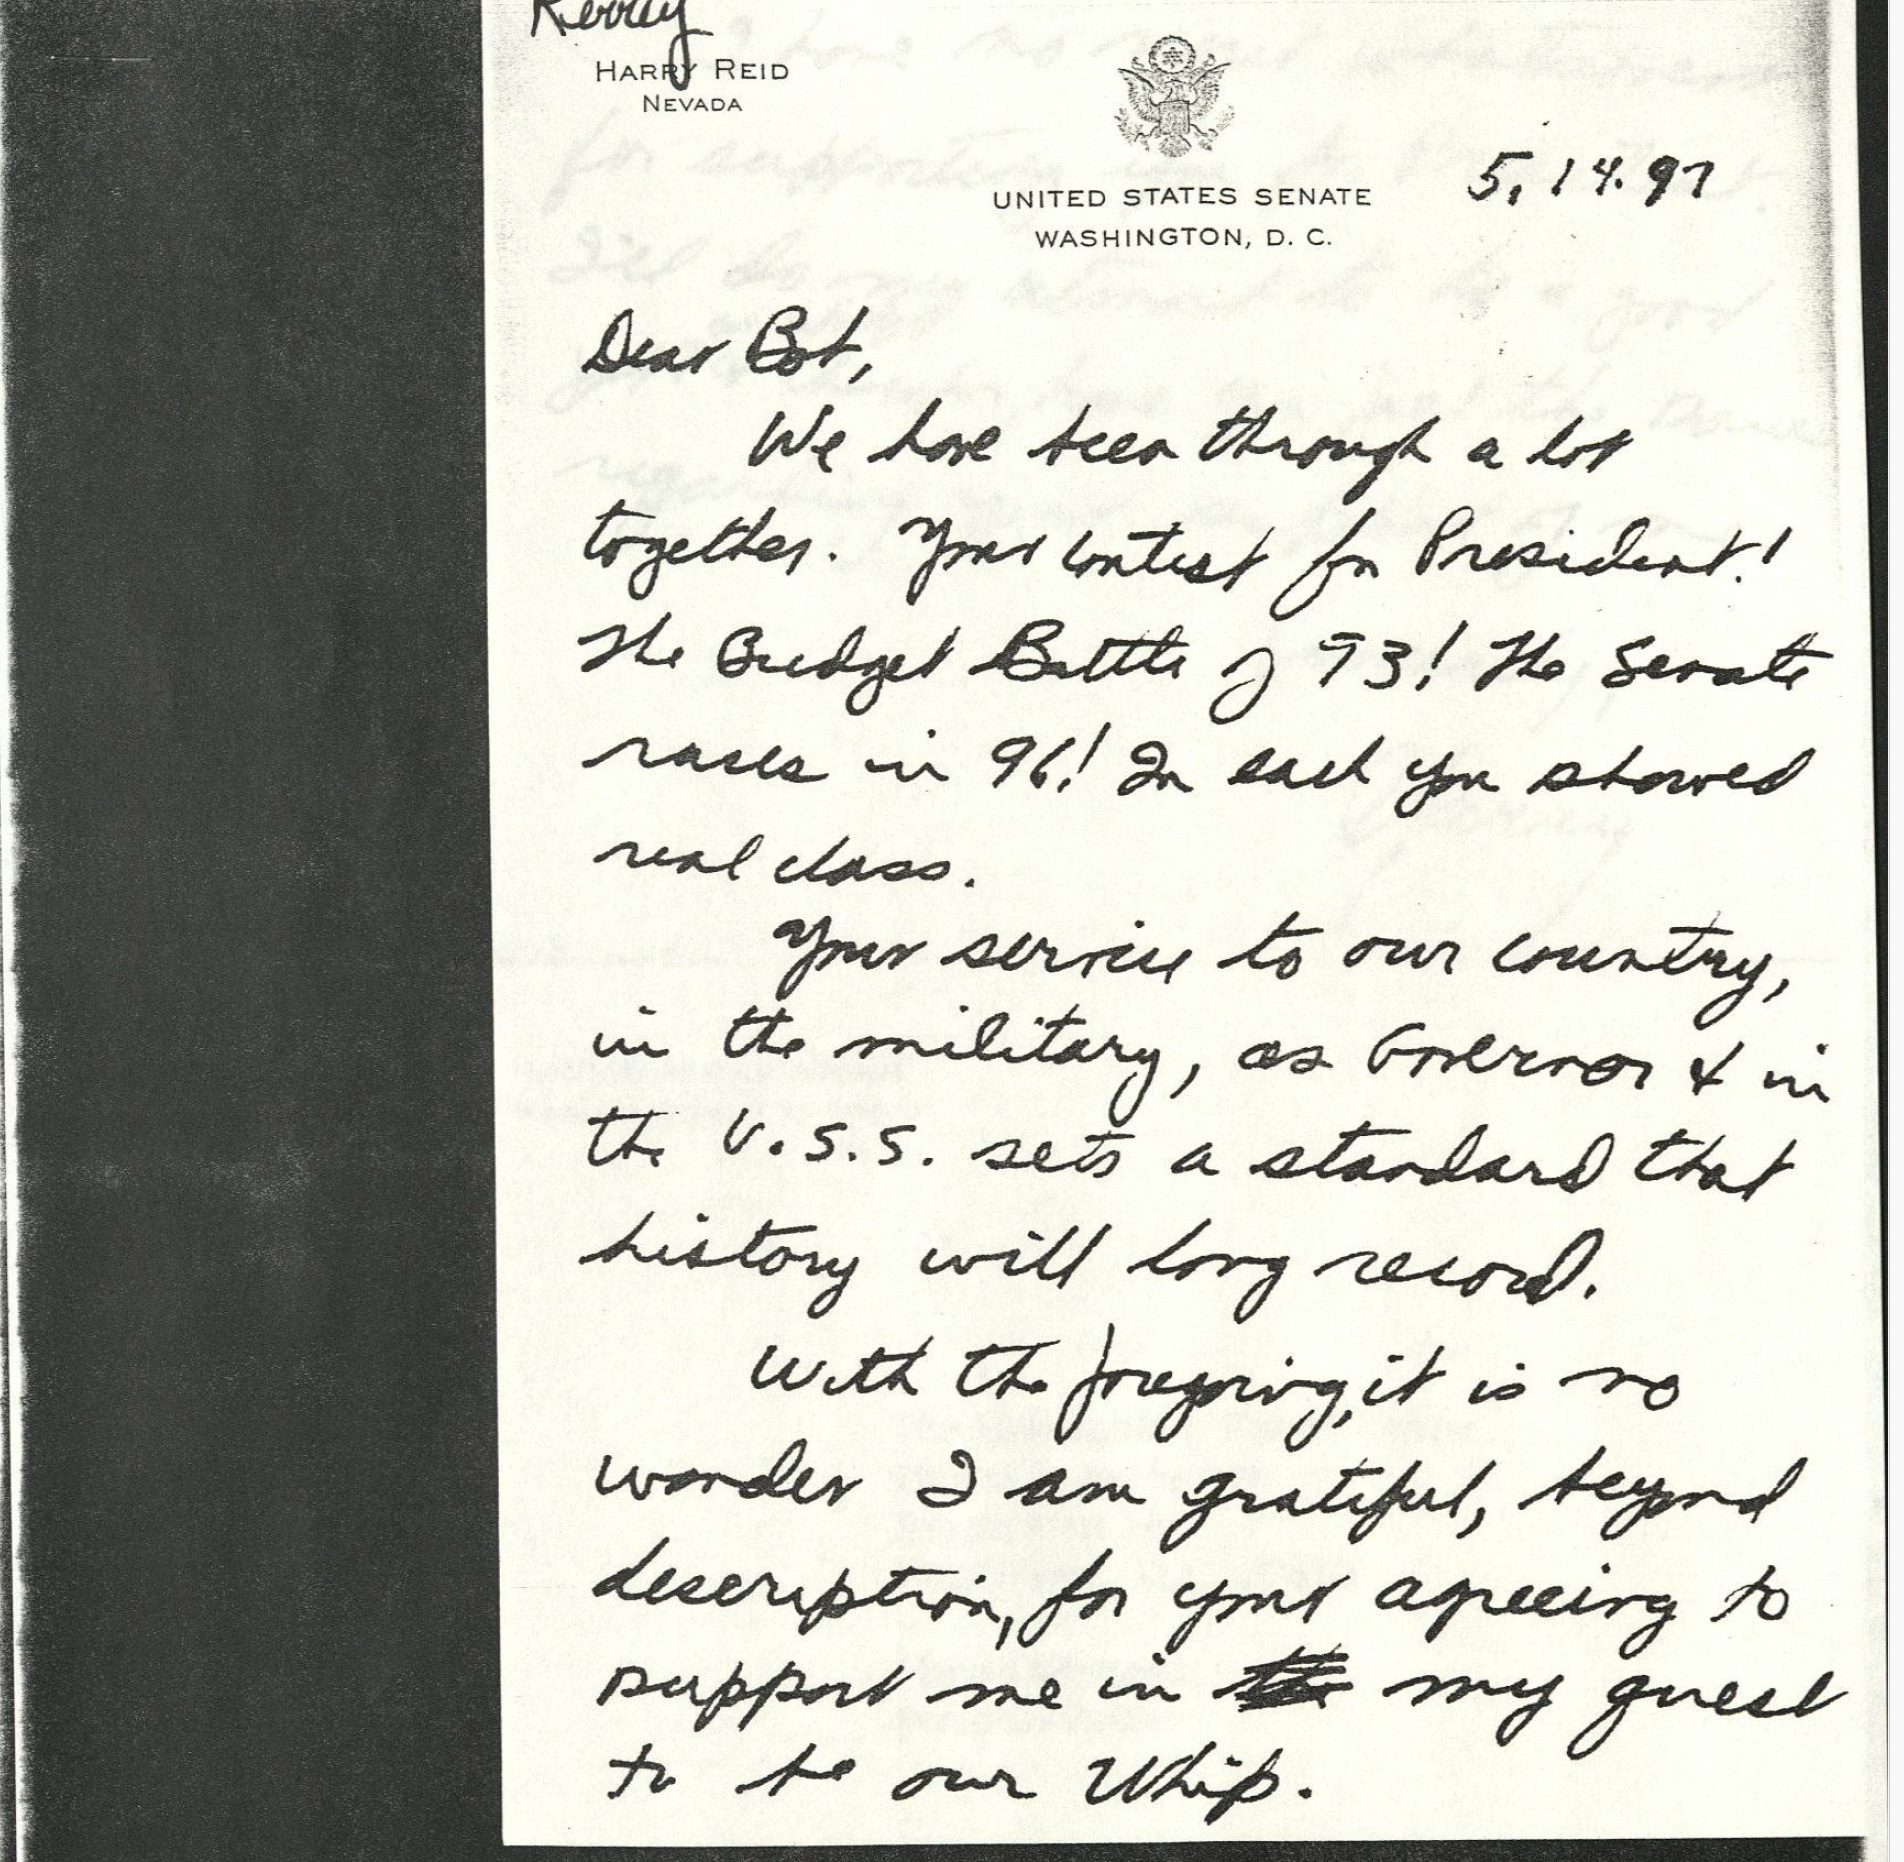 Kerrey
HARRY REID
NEVADA
UNITED STATES SENATE
WASHINGTON, D. C.
5.14.97
Dear Bob,
We have been through a lot
together. Your contest for President!
The Budget Battle of 93! The Senate
races in 96! In each you showed
real class.
Your service to our country,
in the military, as Governor & in
the U.S.S. sets a standard that
history will long record.
With the foregoing, it is no
wonder I am grateful, beyond
description, for your agreeing to
support me in my quest
to be our Whip.